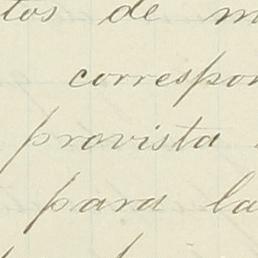 tos de m
correspon
provista
para la